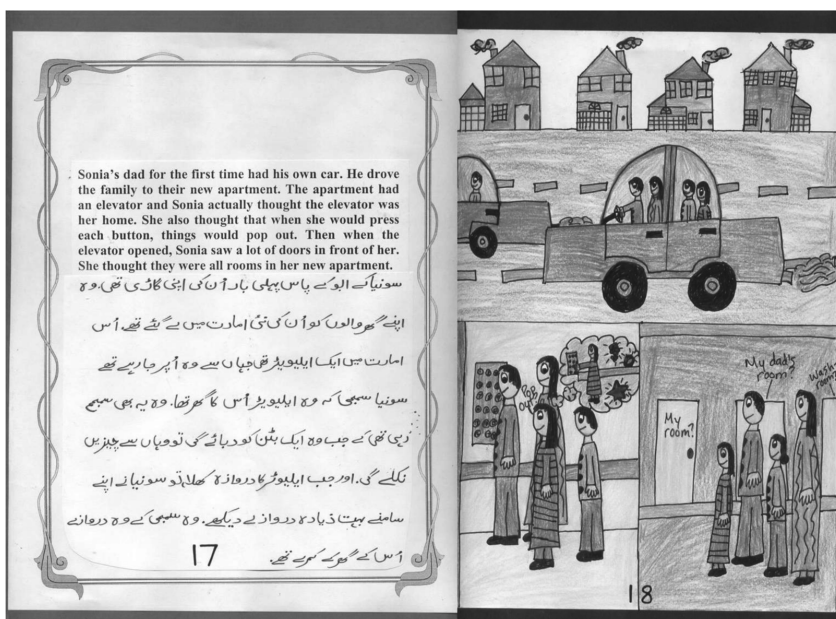 Sonia's dad for the first time had his own car. He drove
the family to their new apartment. The apartment had
an elevator and Sonia actually thought the elevator was
her home. She also thought that when she would press
each button, things would pop out. Then when the
elevator opened, Sonia saw a lot of doors in front of her.
She thought they were all rooms in her new apartment.
سونیا کے ابو کے پاس پہلی بار اُن کی اپنی گاڑی تھی. وہ
اپنے گھر والوں کو اُن کی نئی امارت میں لے گئے تھے. اُس
امارت میں ایک ایلیویٹر تھی جہاں سے وہ اُپر جا رہے تھے
سونیا سمجھی کہ وہ ایلیویٹر اُس کا گھر تھا. وہ یہ بھی سمجھ
رہی تھی کے جب وہ ایک بٹن کو دبائے گی تو وہاں سے چیزیں
نکلے گی. اور جب ایلیوٹر کا دروازہ کھلا تو سونیا نے اپنے
سامنے بہت ذیادہ دروازے دیکھے. وہ سمجھی کے وہ دروازے
اُس کے گھر کے کمرے تھے.
17
Pop
Out
My
room?
My dad's
room?
Wash-
room?
18